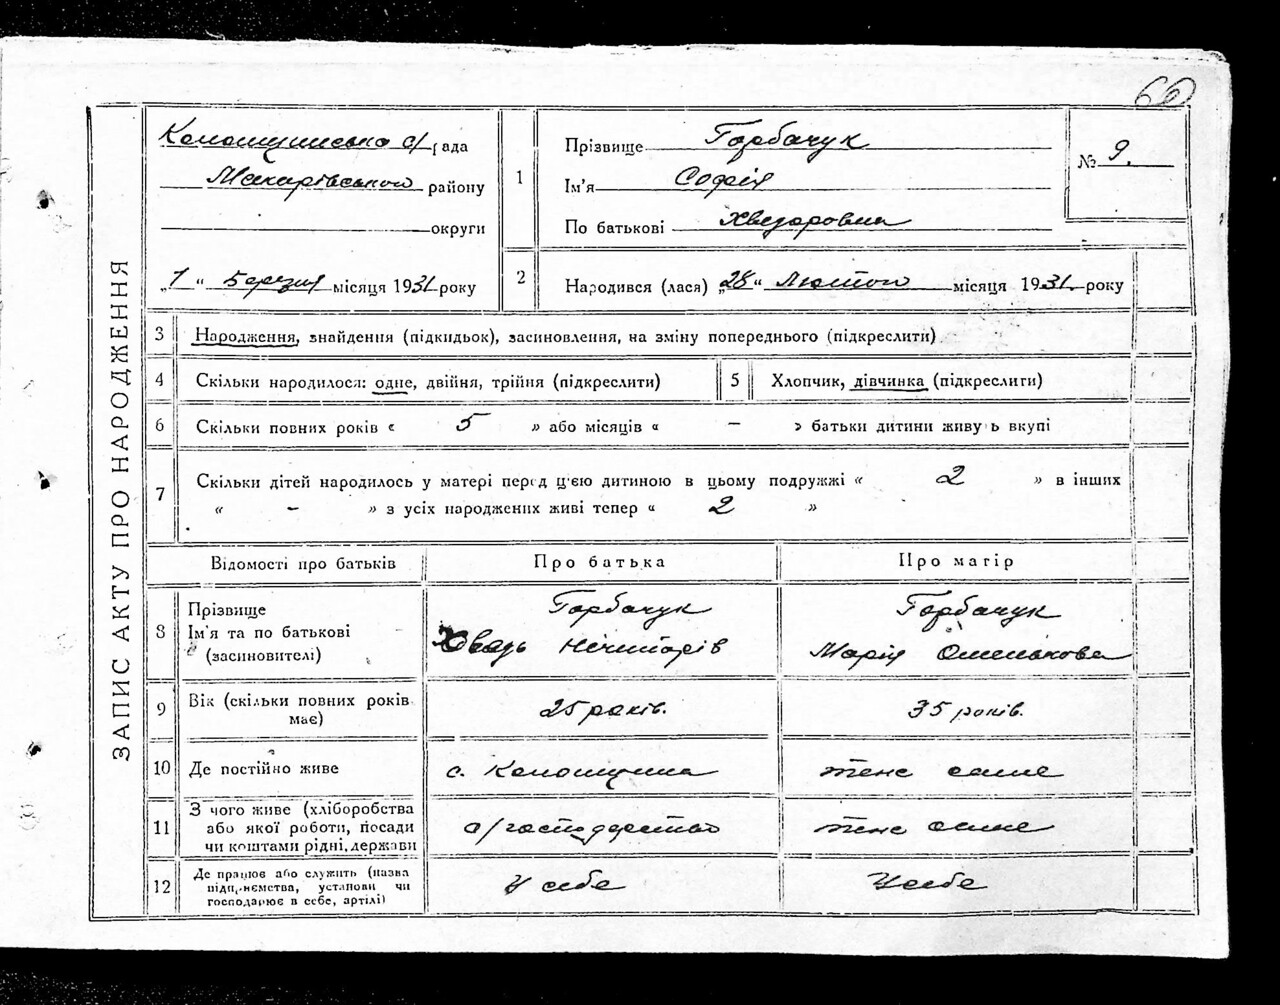 66
ЗАПИС АКТУ ПРО НАРОДЖЕННЯ
Колонщинська с/рада
Макарівського району
округи
„1“ Березня місяця 1931 року
1
Прізвище Горбачук
Ім'я Софія
По батькові Хведоровна
№ 9.
2
Народився (лася) „28“ Лютого місяця 1931 року
3 Народження, знайдення (підкидьок), засиновлення, на зміну попереднього (підкреслити)
4 Скільки народилося: одне, двійня, трійня (підкреслити)
5 Хлопчик, дівчинка (підкреслити)
6 Скільки повних років « 5 » або місяців « – » батьки дитини живуть вкупі
7 Скільки дітей народилось у матері перед цією дитиною в цьому подружжі « 2 » в інших
« – » з усіх народжених живі тепер « 2 »
Відомості про батьків Про батька Про матір
8 Прізвище
Ім'я та по батькові
(засиновителі)
Горбачук
Хведь Нечипорів
Горбачук
Марія Омелькова
9 Вік (скільки повних років
має)
25 років.
35 років.
10 Де постійно живе с. Колонщина теж саме
11 З чого живе (хліборобства
або якої роботи, посади
чи коштами рідні, держави
с/господарство теж саме
12 Де працює або служить (назва
підприємства, установи чи
господарює в себе, артілі)
У себе У себе